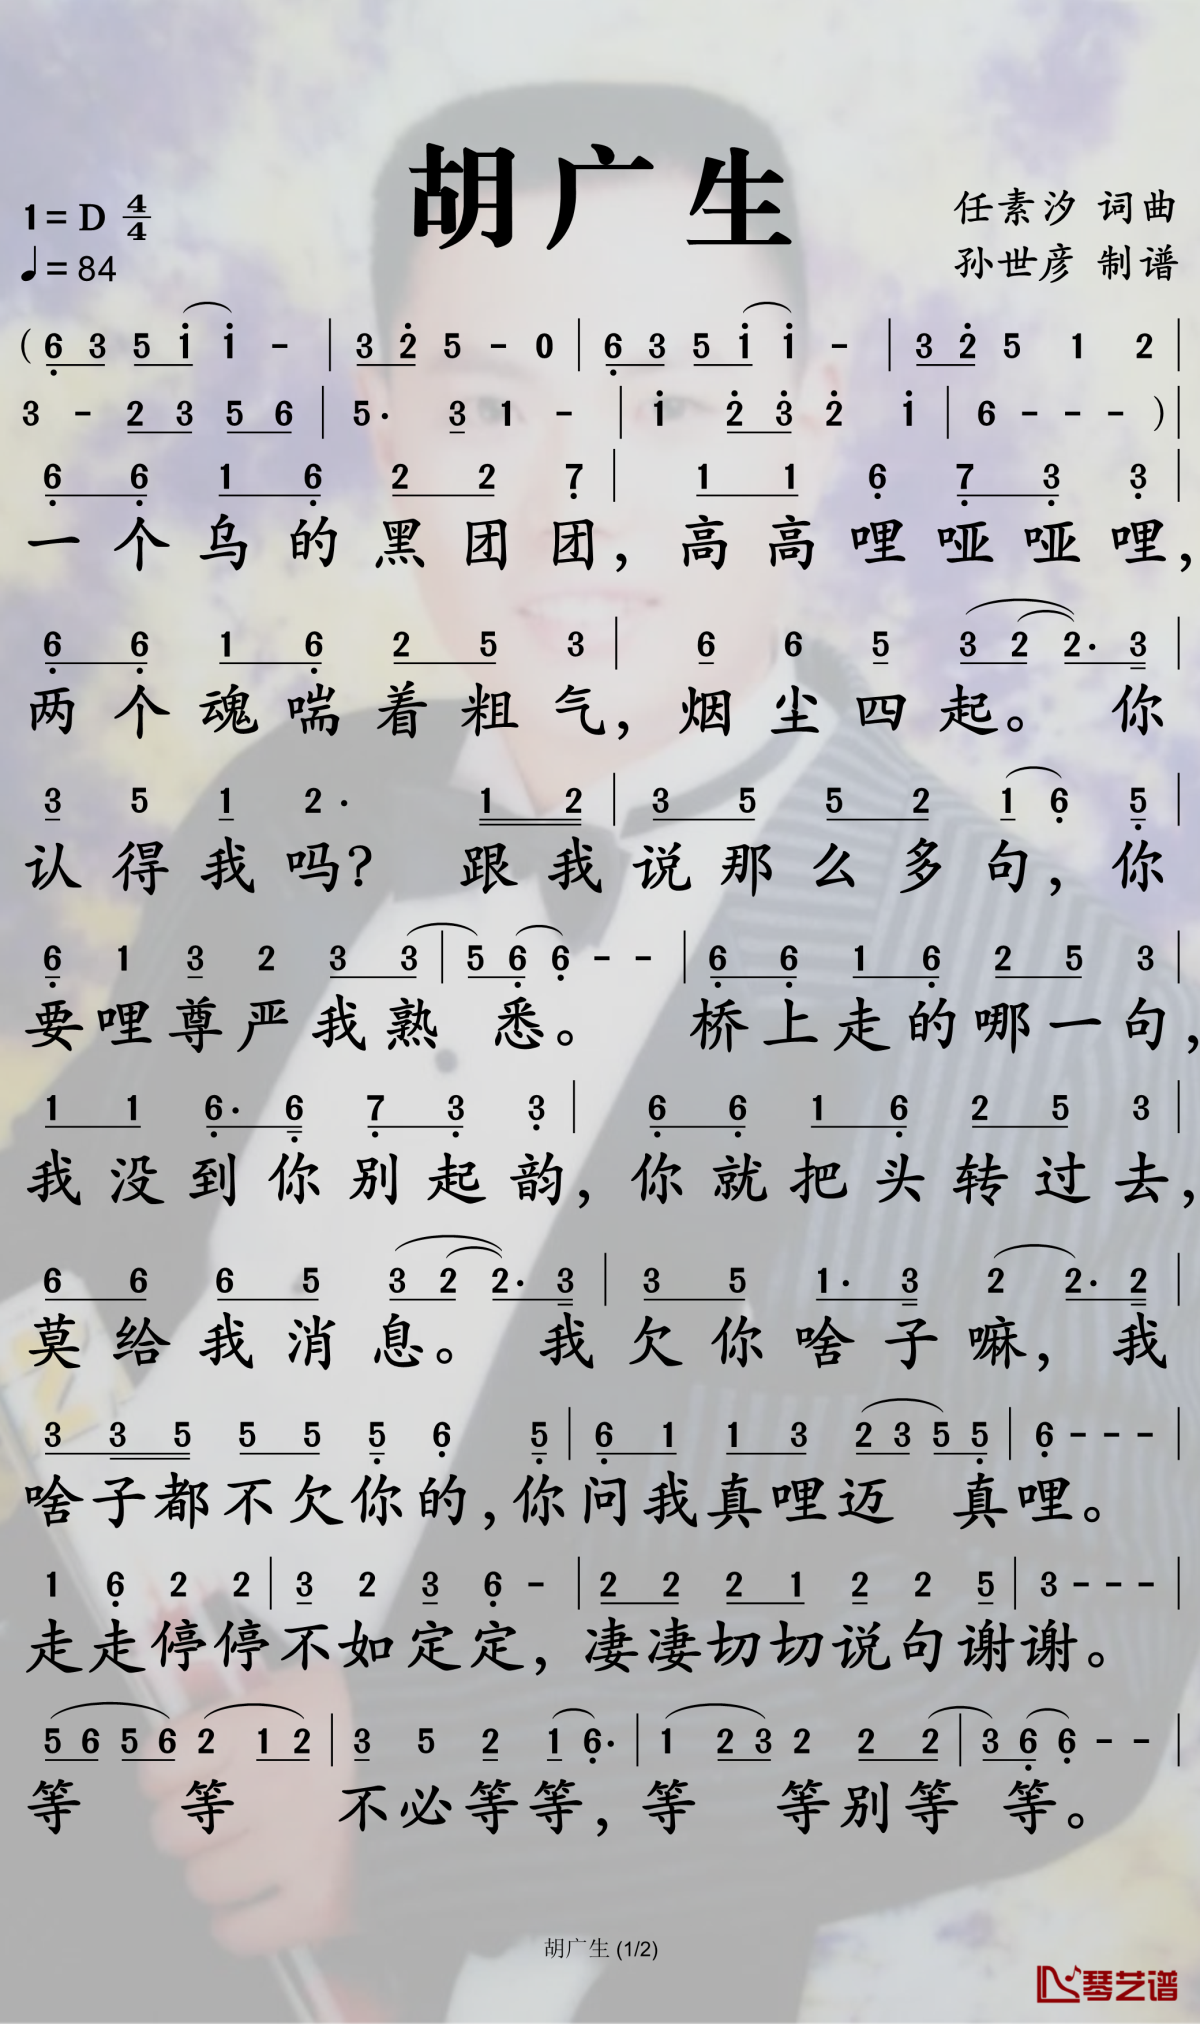 胡广生
1=D 4/4
♩=84
任素汐 词曲
孙世彦 制谱
( 6 3 5 i i - | 3 2 5 - 0 | 6 3 5 i i - | 3 2 5 1 2 |
3 - 2 3 5 6 | 5. 3 1 - | i 2 3 2 i | 6 - - - ) |
6 6 1 6 2 2 7 | 1 1 6 7 3 3 |
一个乌的黑团团，高高哩哑哑哩，
6 6 1 6 2 5 3 | 6 6 5 3 2 2. 3 |
两个魂喘着粗气，烟尘四起。你
3 5 1 2. 1 2 | 3 5 5 2 1 6 5 |
认得我吗？跟我说那么多句，你
6 1 3 2 3 3 | 5 6 6 - - | 6 6 1 6 2 5 3 |
要哩尊严我熟悉。桥上走的哪一句，
1 1 6. 6 7 3 3 | 6 6 1 6 2 5 3 |
我没到你别起韵，你就把头转过去，
6 6 6 5 3 2 2. 3 | 3 5 1. 3 2 2. 2 |
莫给我消息。我欠你啥子嘛，我
3 3 5 5 5 5 6 5 | 6 1 1 3 2 3 5 5 | 6 - - - |
啥子都不欠你的，你问我真哩迈 真哩。
1 6 2 2 | 3 2 3 6 - | 2 2 2 1 2 2 5 | 3 - - - |
走走停停不如定定，凄凄切切说句谢谢。
5 6 5 6 2 1 2 | 3 5 2 1 6. | 1 2 3 2 2 2 | 3 6 6 - - |
等 等 不必等等，等 等别等等。
胡广生 (1/2)
琴艺谱